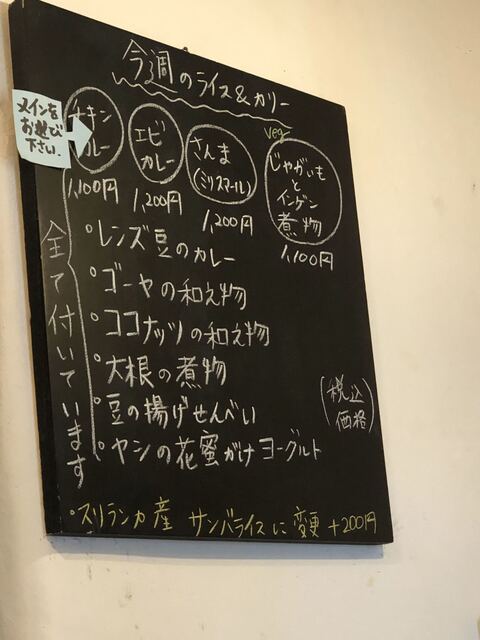 今週のライス&カリー
メインを
お選び
下さい。
チキン
カレー
1,100円
エビ
カレー
1,200円
さんま
(ミリスマール)
1,200円
veg
じゃがいも
と
インゲン
煮物
1,100円
全て付いています
°レンズ豆のカレー
°ゴーヤの和え物
°ココナッツの和え物
°大根の煮物
°豆の揚げせんべい
°ヤシの花蜜がけヨーグルト
(税込
価格)
°スリランカ産 サンバライスに変更 +200円